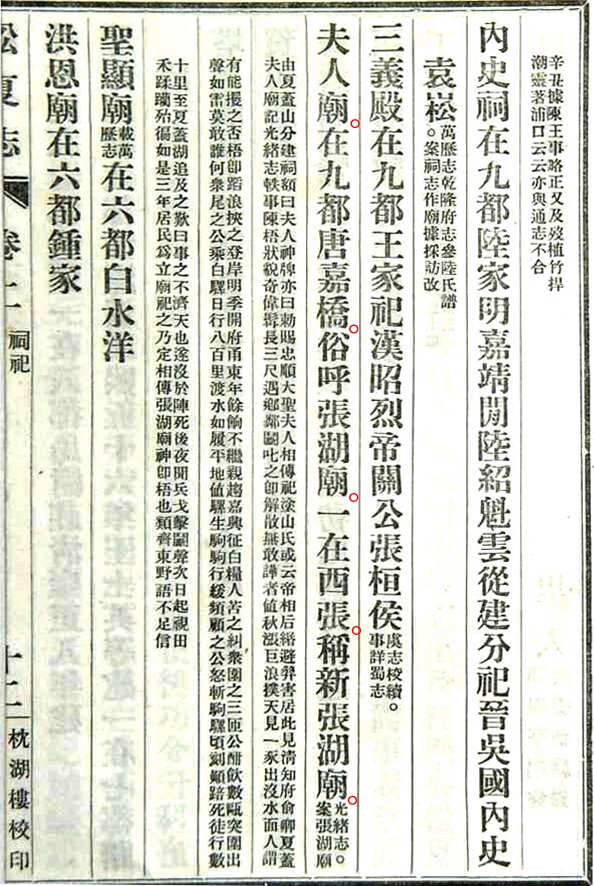 辛丑據陳王事略正又及歿植竹捍
潮靈著浦口云云亦與通志不合
內史祠在九都陸家明嘉靖閒陸紹魁雲從建分祀晉吳國內史
袁崧萬歷志乾隆府志參陸氏譜
。案祠志作廟據採訪改
三義殿在九都王家祀漢昭烈帝關公張桓侯虞志校續。
事詳蜀志
夫人廟在九都唐嘉橋俗呼張湖廟一在西張稱新張湖廟光緒志。
案張湖廟
由夏蓋山分建祠額曰夫人神牌亦曰勅賜忠順大聖夫人相傳祀塗山氏或云帝相后緡避羿害居此見清知府俞卿夏蓋
夫人廟記光緒志軼事陳梧狀貌奇偉髯長三尺遇鄉鄰鬭叱之卽解散無敢譁者値秋漲巨浪撲天見一豕出沒水面人謂
有能援之否梧卽蹈浪挾之登岸明季開府甬東年餘餉不繼親趨嘉興征白糧人苦之糾衆圍之三匝公酣飲數甌突圍出
聲如雷莫敢誰何衆尾之公乘白騾日行八百里渡水如履平地値騾生駒駒行緩頻顧之公怒斬駒騾頃刻顛踣死徒行數
十里至夏蓋湖追及之歎曰事之不濟天也遂沒於陣死後夜聞兵戈擊鬭聲次日起視田
禾蹂躪殆徧如是三年居民爲立廟祀之乃定相傳張湖廟神卽梧也類齊東野語不足信
聖顯廟載萬歷志在六都白水洋
洪恩廟在六都鍾家
松夏志 卷二 祠祀 十二 枕湖樓校印